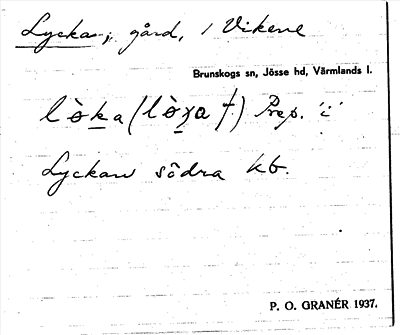 Lyckan, gård, i Vikene
Brunskogs sn, Jösse hd, Värmlands l.
Prep. 'i'
Lyckan södra kb.
P. O. GRANÉR 1937.